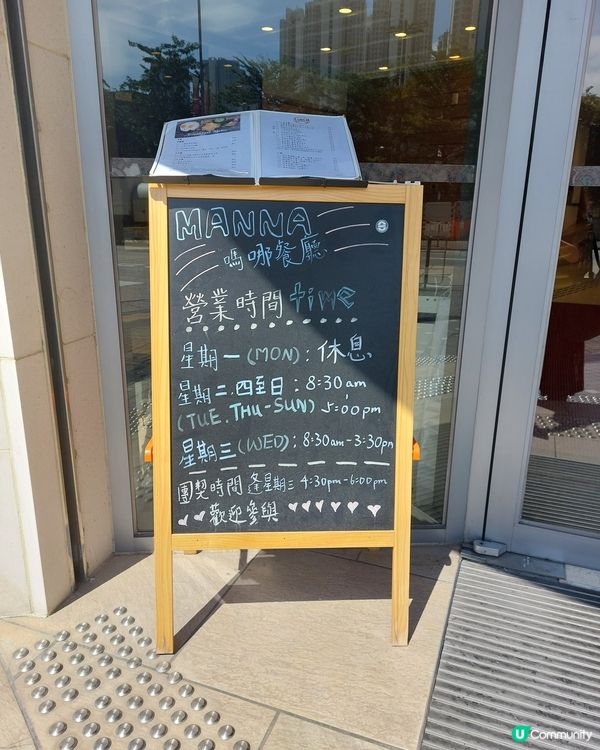 MANNA
嗎哪餐廳
營業時間 time
星期一(MON): 休息
星期二.四至日: 8:30am
(TUE. THU-SUN) 5:00pm
星期三(WED): 8:30am-3:30pm
團契時間 逢星期三 4:30pm-6:00pm
歡迎參與
U Community